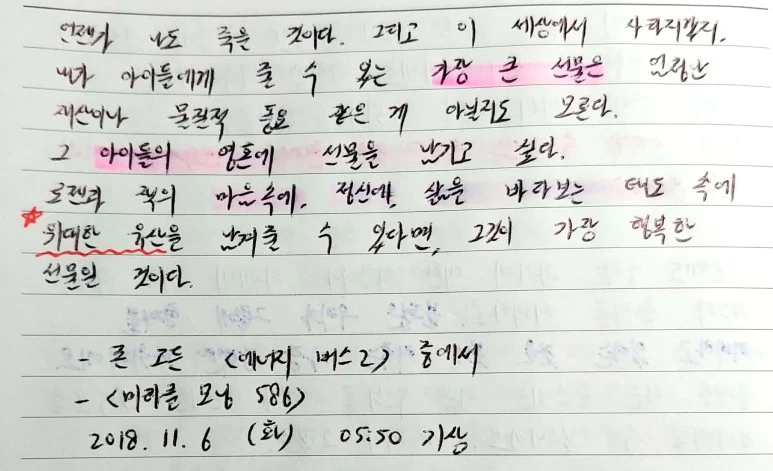 언젠가 나도 죽을 것이다. 그리고 이 세상에서 사라지겠지.
내가 아이들에게 줄 수 있는 가장 큰 선물은 엄청난
재산이나 물질적 풍요 같은 게 아닐지도 모른다.
그 아이들의 영혼에 선물을 남기고 싶다.
로렌과 잭의 마음속에, 정신에, 삶을 바라보는 태도 속에
위대한 유산을 남겨줄 수 있다면, 그것이 가장 행복한
선물일 것이다.
- 존 고든 <에너지 버스2> 중에서
- <미라클 모닝 586>
2018. 11. 6 (화) 05:50 기상